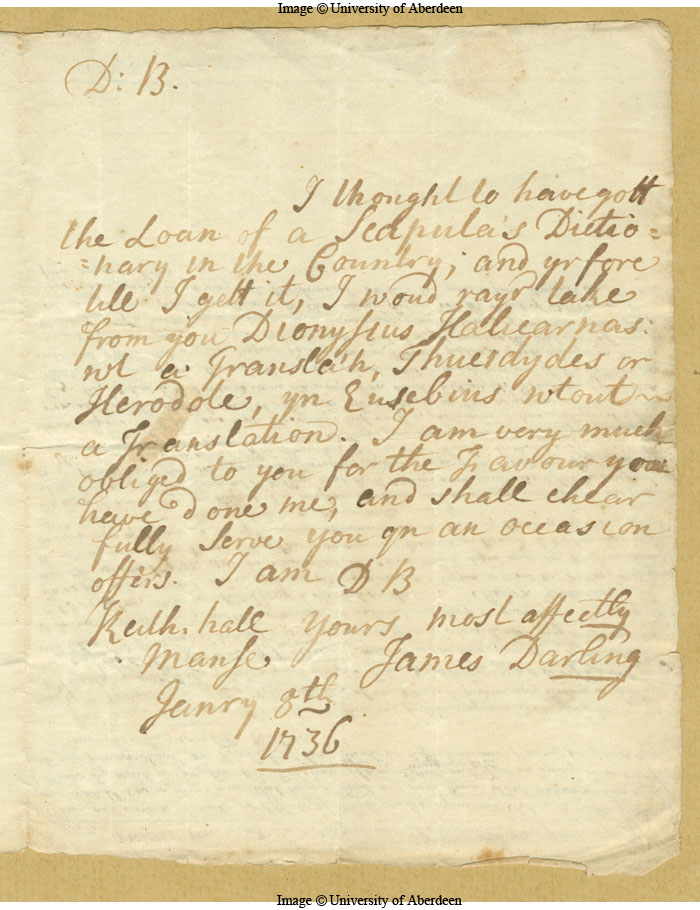 Image © University of Aberdeen
D: B.
I thought to have gott
the Loan of a Scapula's Dictio=
=nary in the Country; and yrfore
till I gett it, I woud rayr take
from you Dionysius Halicarnas:
wt a Translatn, Thucidydes or
Herodote, yn Eusebius wtout
a Translation. I am very much
obliged to you for the Favour you
have done me, and shall chear
fully serve you qn an occasion
offers. I am D B
Keith-hall yours most affectly
Manse James Darling
Janry 8th
1736
Image © University of Aberdeen